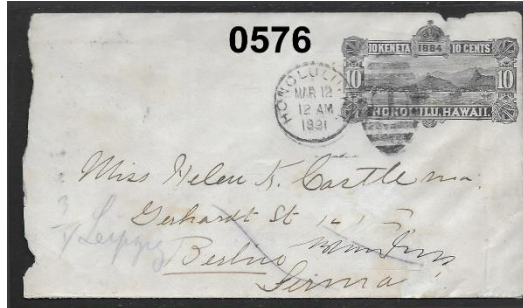 0576
10 KENETA 1884 10 CENTS
10 10
HONOLULU, HAWAII.
HONOLULU
MAR 12
12 AM
1891
Miss Helen K. Castle
Gerhardt St
Leipzig
Berlin